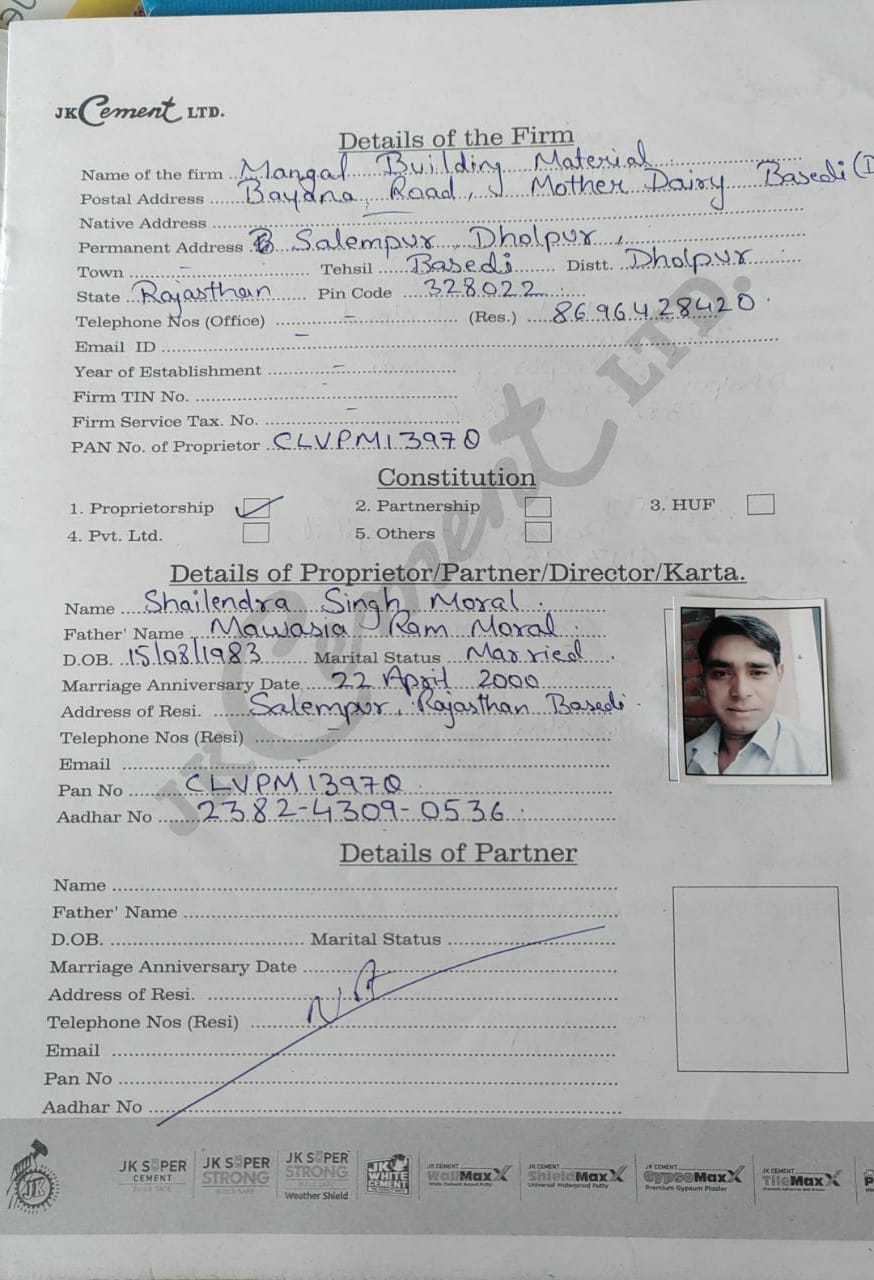 JK Cement LTD.
Details of the Firm
Name of the firm Mangal Building Material
Postal Address Bayana, Road, Mother Dairy Basedi
Native Address
Permanent Address Salempur, Dholpur,
Town - Tehsil Basedi Distt. Dholpur
State Rajasthan Pin Code 328022
Telephone Nos (Office) - (Res.) 8696428420
Email ID -
Year of Establishment -
Firm TIN No.
Firm Service Tax. No. -
PAN No. of Proprietor CLVPM1397Q
Constitution
1. Proprietorship ✓ 2. Partnership 3. HUF
4. Pvt. Ltd. 5. Others
Details of Proprietor/Partner/Director/Karta.
Name Shailendra Singh Moral
Father' Name Mawasia Ram Moral
D.OB. 15/08/1983 Marital Status Married
Marriage Anniversary Date 22 April 2000
Address of Resi. Salempur, Rajasthan Basedi
Telephone Nos (Resi) -
Email -
Pan No CLVPM1397Q
Aadhar No 2382-4309-0536
Details of Partner
Name
Father' Name
D.OB. Marital Status
Marriage Anniversary Date
Address of Resi.
Telephone Nos (Resi) NA
Email
Pan No
Aadhar No
JK Cement LTD.
JK JK SUPER CEMENT BUILD SAFE JK SUPER STRONG BUILD SAFE JK SUPER STRONG BUILD SAFE Weather Shield JK WHITE CEMENT JK CEMENT WallMaxX White Cement Based Putty JK CEMENT ShieldMaxX Universal Waterproof Putty JK CEMENT GypsoMaxX Premium Gypsum Plaster JK CEMENT TileMaxX